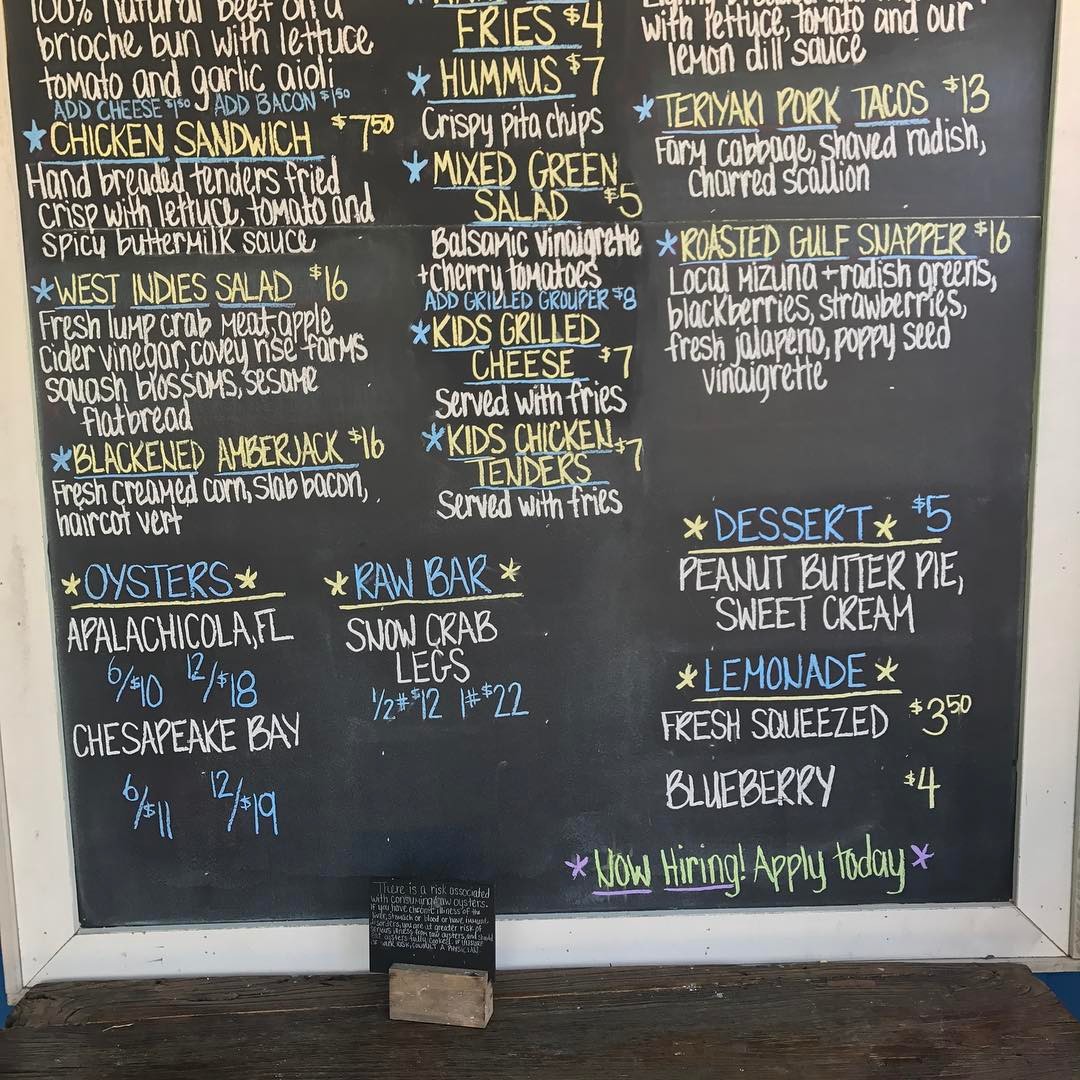 100% natural beef on a
brioche bun with lettuce
tomato and garlic aioli
ADD CHEESE $150 ADD BACON $150
* CHICKEN SANDWICH $750
Hand breaded tenders fried
crisp with lettuce, tomato and
spicy buttermilk sauce
* WEST INDIES SALAD $16
Fresh lump crab meat, apple
cider vinegar, covey rise farms
squash blossoms, sesame
flatbread
* BLACKENED AMBERJACK $16
Fresh creamed corn, slab bacon,
haircot vert
FRIES $4
* HUMMUS $7
Crispy pita chips
* MIXED GREEN
SALAD $5
Balsamic vinaigrette
+cherry tomatoes
ADD GRILLED GROUPER $8
* KIDS GRILLED
CHEESE $7
Served with fries
* KIDS CHICKEN $7
TENDERS
Served with fries
with lettuce, tomato and our
lemon dill sauce
* TERIYAKI PORK TACOS $13
Farm cabbage, shaved radish,
charred scallion
* ROASTED GULF SNAPPER $16
Local mizuna + radish greens,
blackberries, strawberries,
fresh jalapeno, poppy seed
vinaigrette
* OYSTERS *
APALACHICOLA, FL
6/$10 12/$18
CHESAPEAKE BAY
6/$11 12/$19
* RAW BAR *
SNOW CRAB
LEGS
1/2# $12 1# $22
* DESSERT * $5
PEANUT BUTTER PIE,
SWEET CREAM
* LEMONADE *
FRESH SQUEEZED $350
BLUEBERRY $4
* Now Hiring! Apply today *
There is a risk associated
with consuming raw oysters.
If you have chronic illness of the
liver, stomach or blood or have immune
disorders, you are at greater risk of
serious illness from raw oysters, and should
eat oysters fully cooked. If unsure
of your risk, consult a physician.